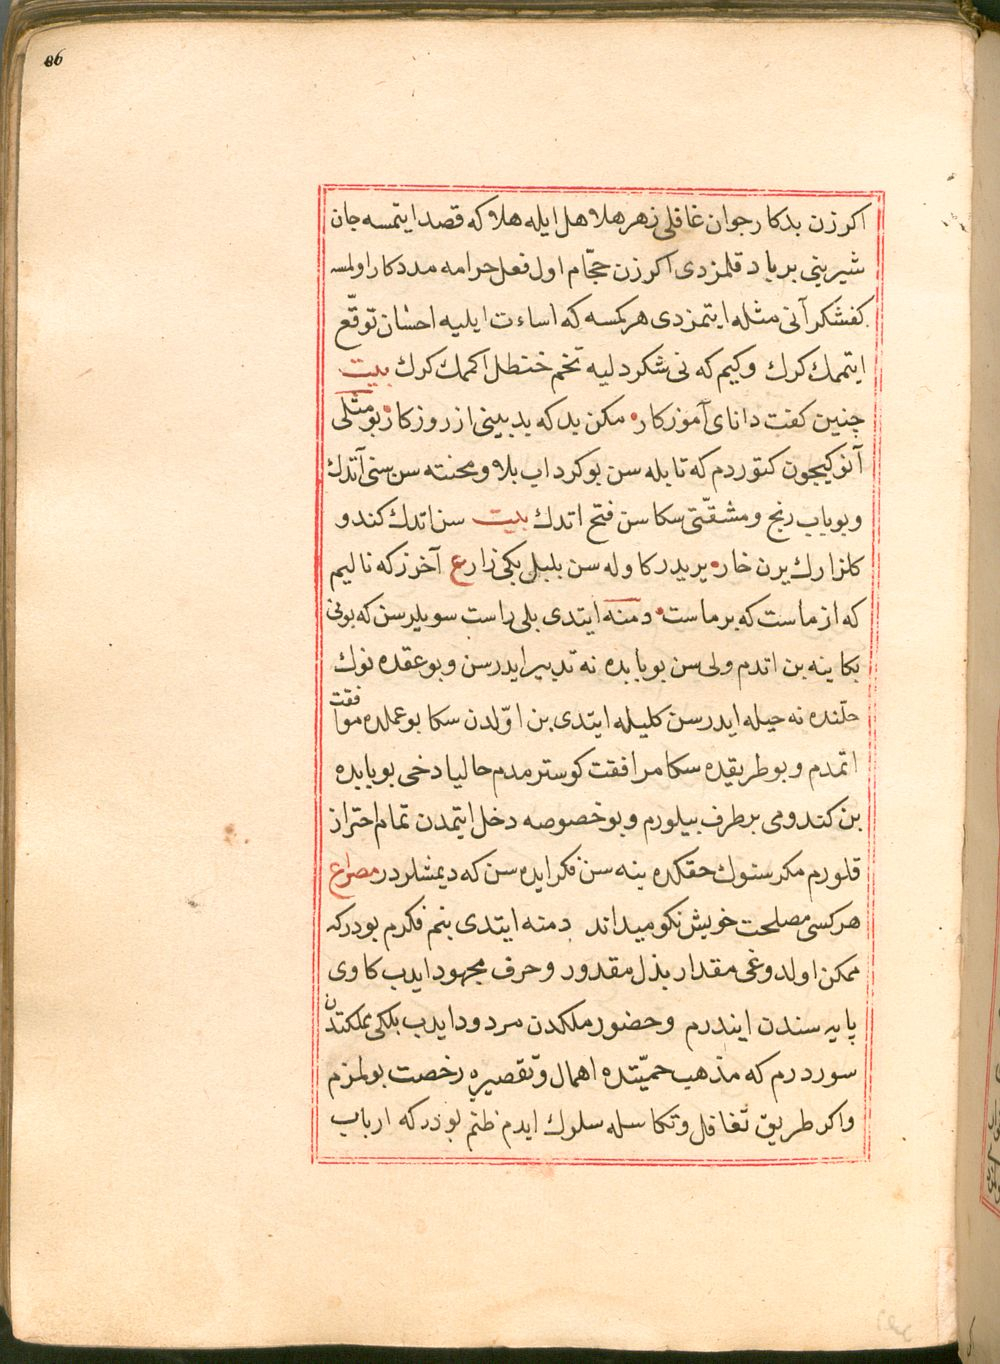 86
اكر زن بدكار جوان غافلى زهر هلاهل ايله هلاكه قصد ايتمسه جان
شيرينى برباد قلمزدى اكر زن حجّام اول فعل حرامه مددكار اولمسه
كفشكر آنى مثله ايتمزدى هر كمسه كه اساءت ايليه احسان توقّع
ايتممك كرك وكيم كه نى شكر دليه تخم خنطل اكمك كرك بيت
چنين كفت داناى آموزكار مكن بد كه بد بينى از روزكار بو مثلى
آنوكيچون كتوردم كه تا بله سن بو كرداب بلا و محنته سن سنى آتدك
و بو باب رنج و مشقّتى سكا سن فتح اتدك بيت سن اتدك كندو
كلزارك يرن خار يريدر كاوله سن بلبل بكى زار ع آخر ز كه ناليم
كه از ماست كه بر ماست دمنه ايتدى بلى راست سويلرسن كه بونى
بكا ينه بن اتدم ولى سن بو بابده نه تدبير ايدرسن و بو عقده نوك
حلّنده نه حيله ايدرسن كليله ايتدى بن اوّلدن سكا بو عملده موافقت
اتمدم و بو طريقده سكا مرافقت كوسترمدم حاليا دخى بو بابده
بن كندومى بر طرف بيلورم و بو خصوصه دخل ايتمدن تمام احتراز
قلورم مكر سنوك حقكده ينه سن فكر ايده سن كه ديمشلردر مصراع
هر كسى مصلحت خويش نكو ميداند دمنه ايتدى بنم فكرم بودركه
ممكن اولدوغى مقدار بذل مقدور و حرف مجهود ايدب كاوى
پايه سندن ايندرم و حضور ملكدن مردود ايدب بلكى مملكتدن
سوردرم كه مذهب حميّتده اهمال و تقصيره رخصت بولمزم
و اكر طريق تغافل و تكاسله سلوك ايدم ظنم بودركه ارباب